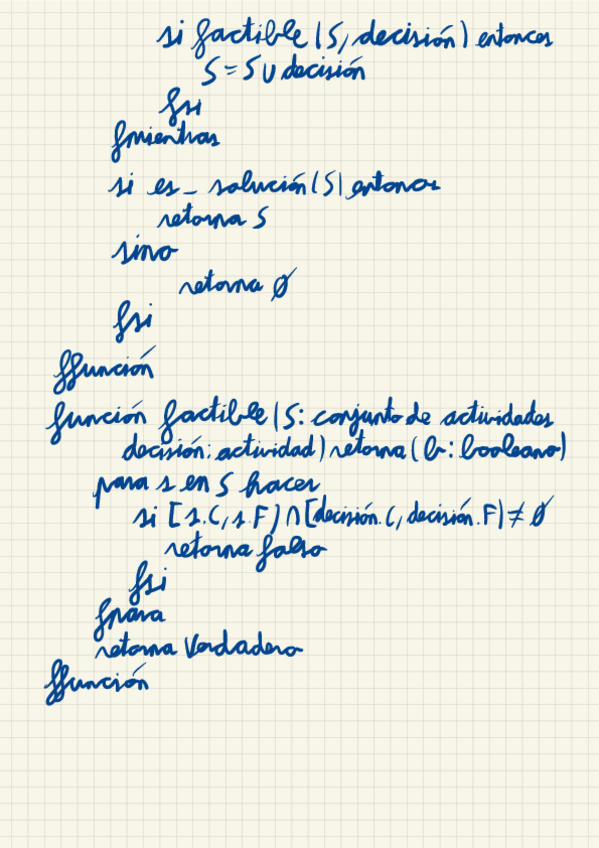 si factible (S, decisión) entonces
S = S ∪ decisión
fsi
fmientras
si es_solución (S) entonces
retorna S
sino
retorna ∅
fsi
ffunción
función factible (S: conjunto de actividades
decisión: actividad) retorna (b: booleano)
para s en S hacer
si [s.C, s.F) ∩ [decisión.C, decisión.F) ≠ ∅
retorna falso
fsi
fpara
retorna Verdadero
ffunción